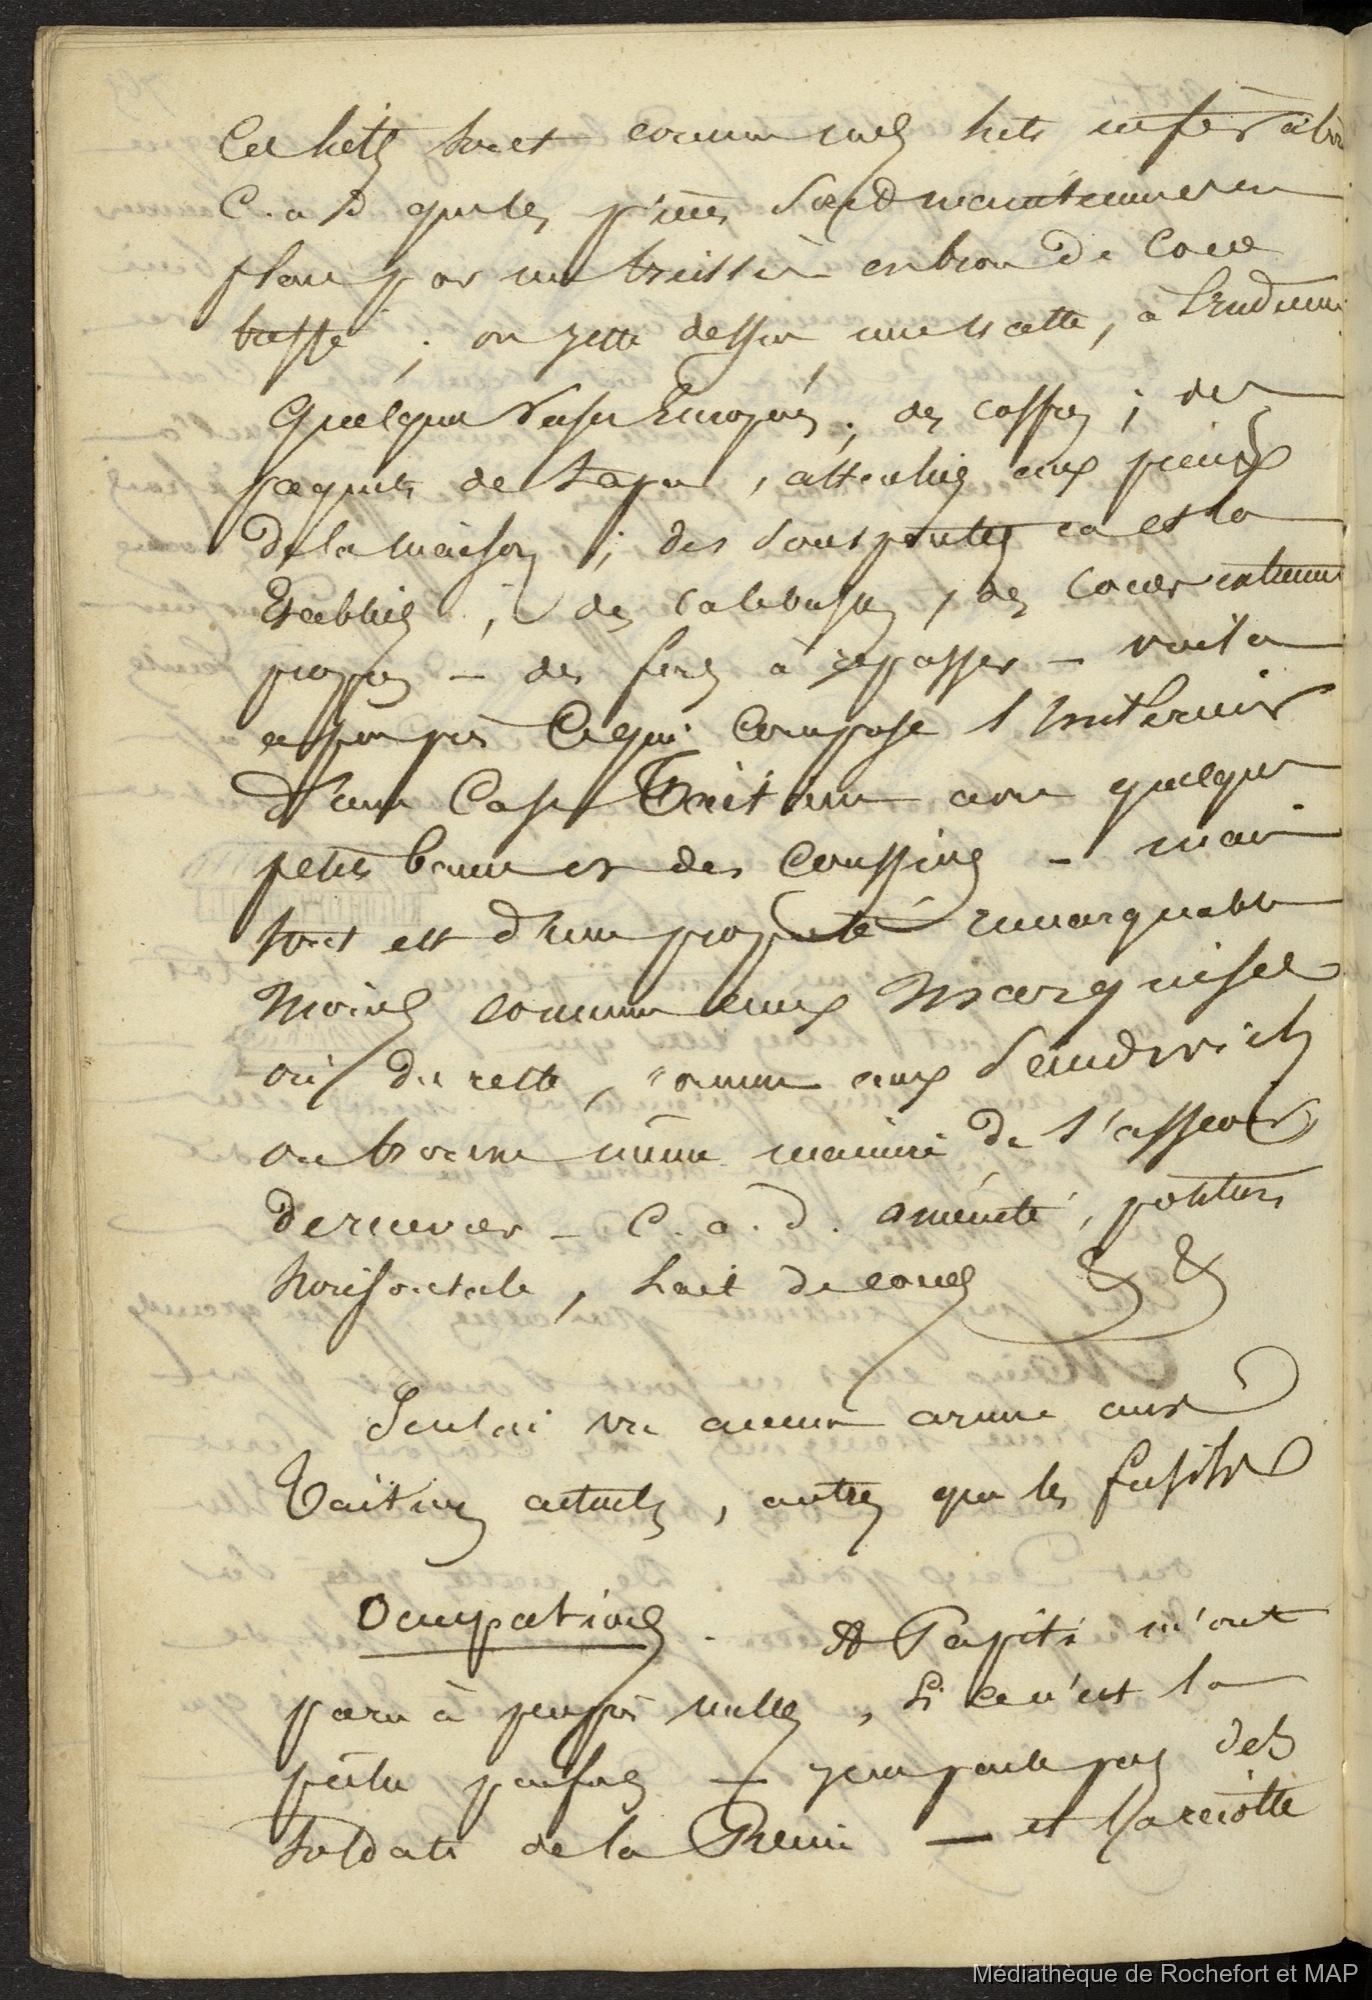 Ces lits sont comme nos lits
C. a D que les sont maintenus en
par un treillis en brou de Coco
tressé ; on jette dessus une natte, à
quelques vases Européens ; des coffres ; des
paquets de tapa, attachés aux pieux
de la maison ; des soupentes ca et la
Etablies ; des calebasses, des cocos
propres – des fers à repasser – voila
a peu près Ce qui Compose l'intérieur
d'une Case Taitienne avec quelques
petits bancs et des Coussins – mais
tout est d'une propreté remarquable
Moins comme aux Marquises
où du reste, comme aux Sandwich
on trouve même manière de s'asseoir
de recevoir – C. a. D. aménité, posture
horisontale, lait de cocos & &
Je n'ai vu aucune arme aux
Taitiens actuels, autres que les fusils
Occupations. A Papiti m'ont
paru à peu près nulles, si ce n'est la
pêche – je ne parle pas des
soldats de la Reine – et
Médiathèque de Rochefort et MAP